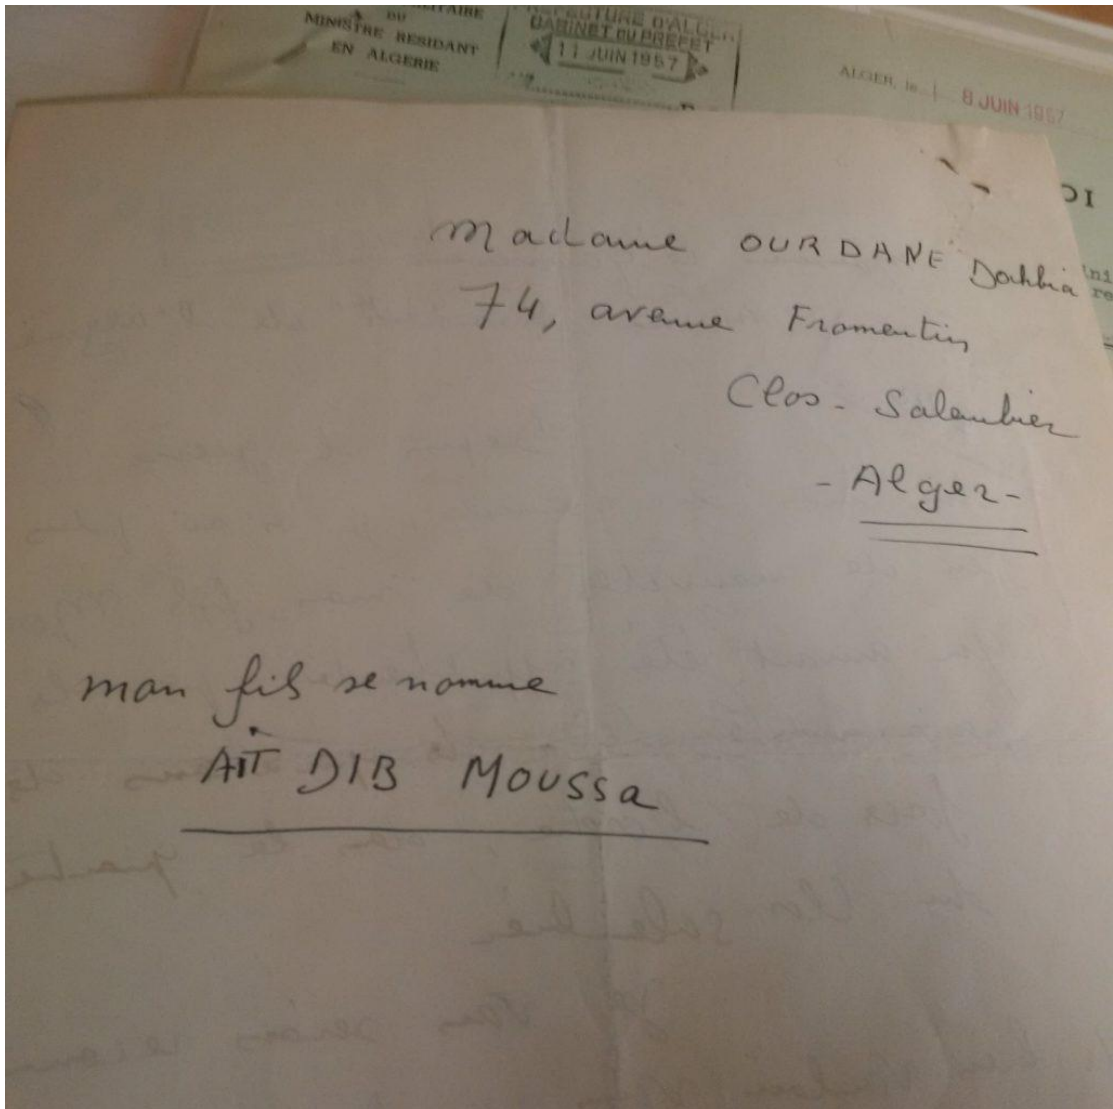 DU
MINISTRE RESIDANT
EN ALGERIE
PREFECTURE D'ALGER
CABINET DU PREFET
11 JUIN 1957
ALGER, le 8 JUIN 1957
Madame OURDANE Dahbia
74, avenue Fromentin
Clos-Salembier
-Alger-
mon fils se nomme
AÏT DIB MOUSSa